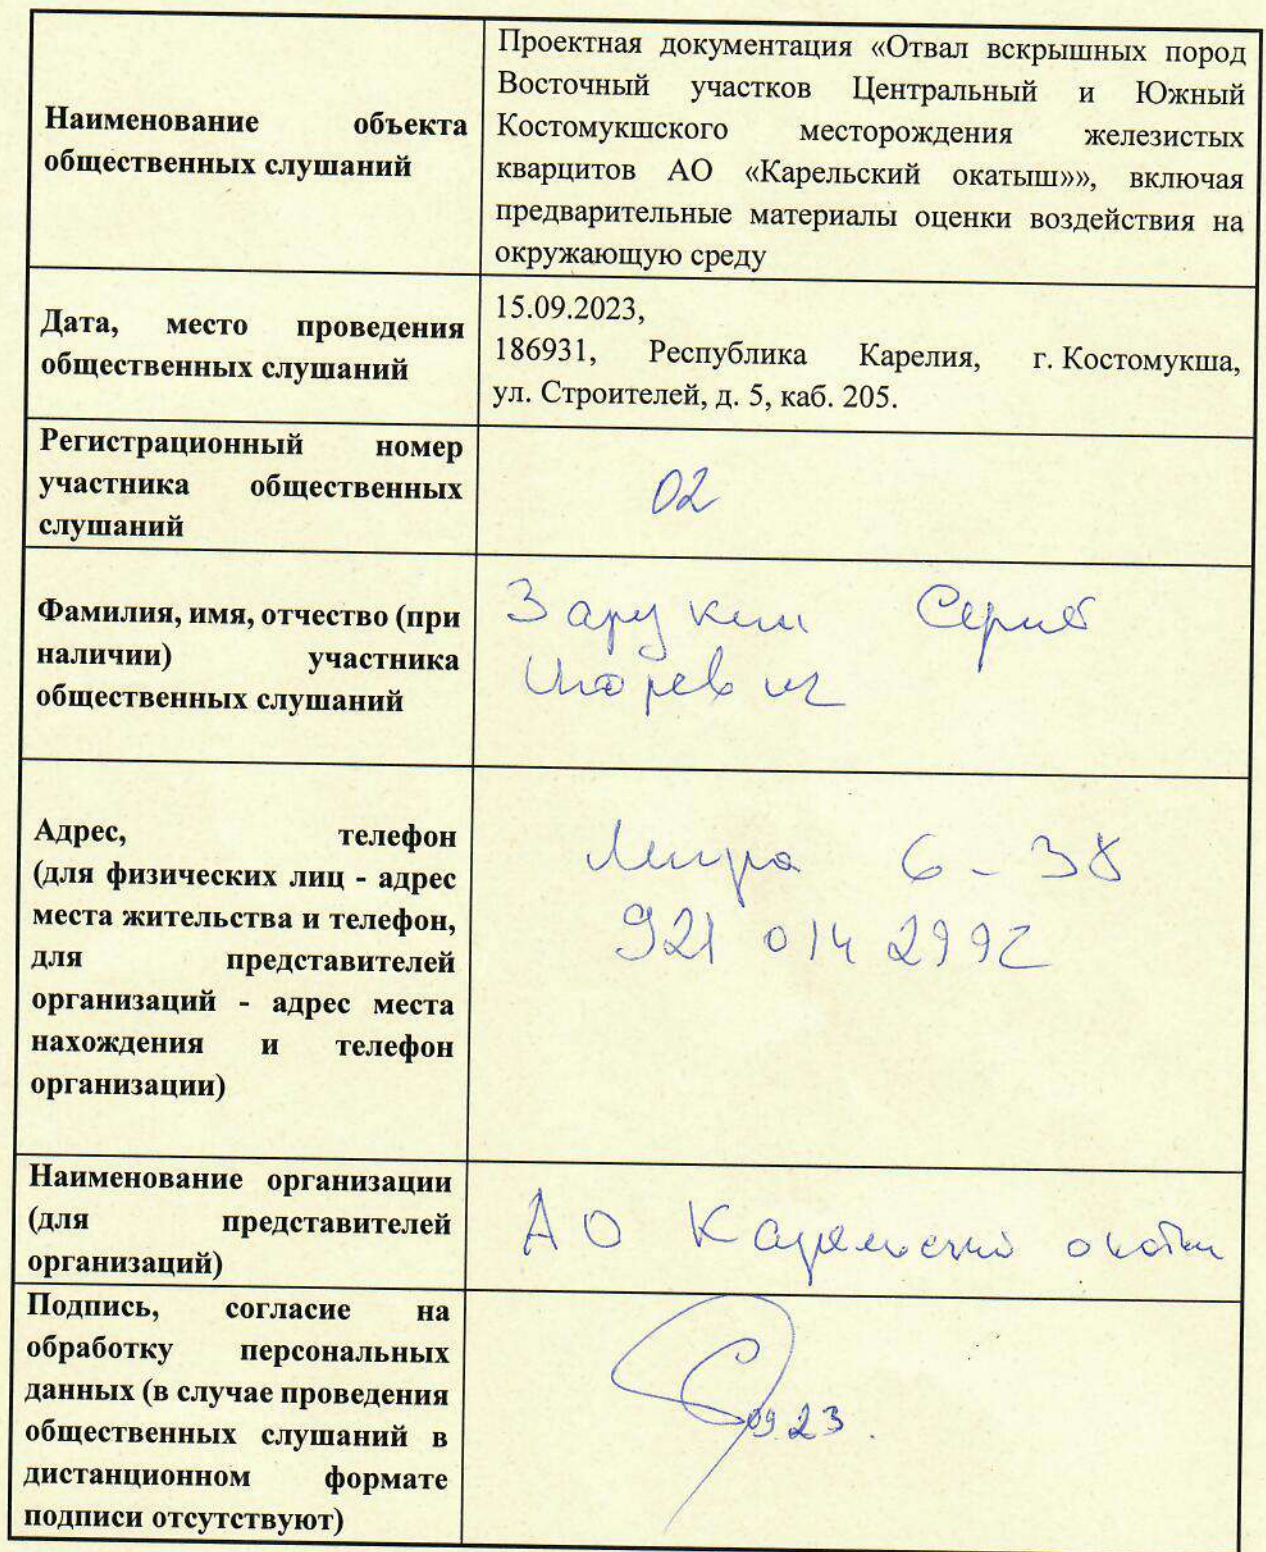 Наименование объекта
общественных слушаний
Проектная документация «Отвал вскрышных пород
Восточный участков Центральный и Южный
Костомукшского месторождения железистых
кварцитов АО «Карельский окатыш»», включая
предварительные материалы оценки воздействия на
окружающую среду
Дата, место проведения
общественных слушаний
15.09.2023,
186931, Республика Карелия, г. Костомукша,
ул. Строителей, д. 5, каб. 205.
Регистрационный номер
участника общественных
слушаний
02
Фамилия, имя, отчество (при
наличии) участника
общественных слушаний
Зарукин Сергей
Игоревич
Адрес, телефон
(для физических лиц - адрес
места жительства и телефон,
для представителей
организаций - адрес места
нахождения и телефон
организации)
Мира 6-38
921 014 2992
Наименование организации
(для представителей
организаций)
АО Карельский окатыш
Подпись, согласие на
обработку персональных
данных (в случае проведения
общественных слушаний в
дистанционном формате
подписи отсутствуют)
09.23.